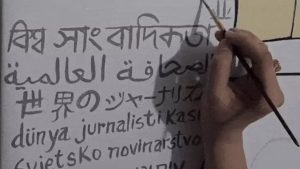 业
বিশ্ব সাংবাদিকতা
الصحافة العالمية
世界のジャーナリズ
dünya jurnalistikas
svjetsko novinarstvo